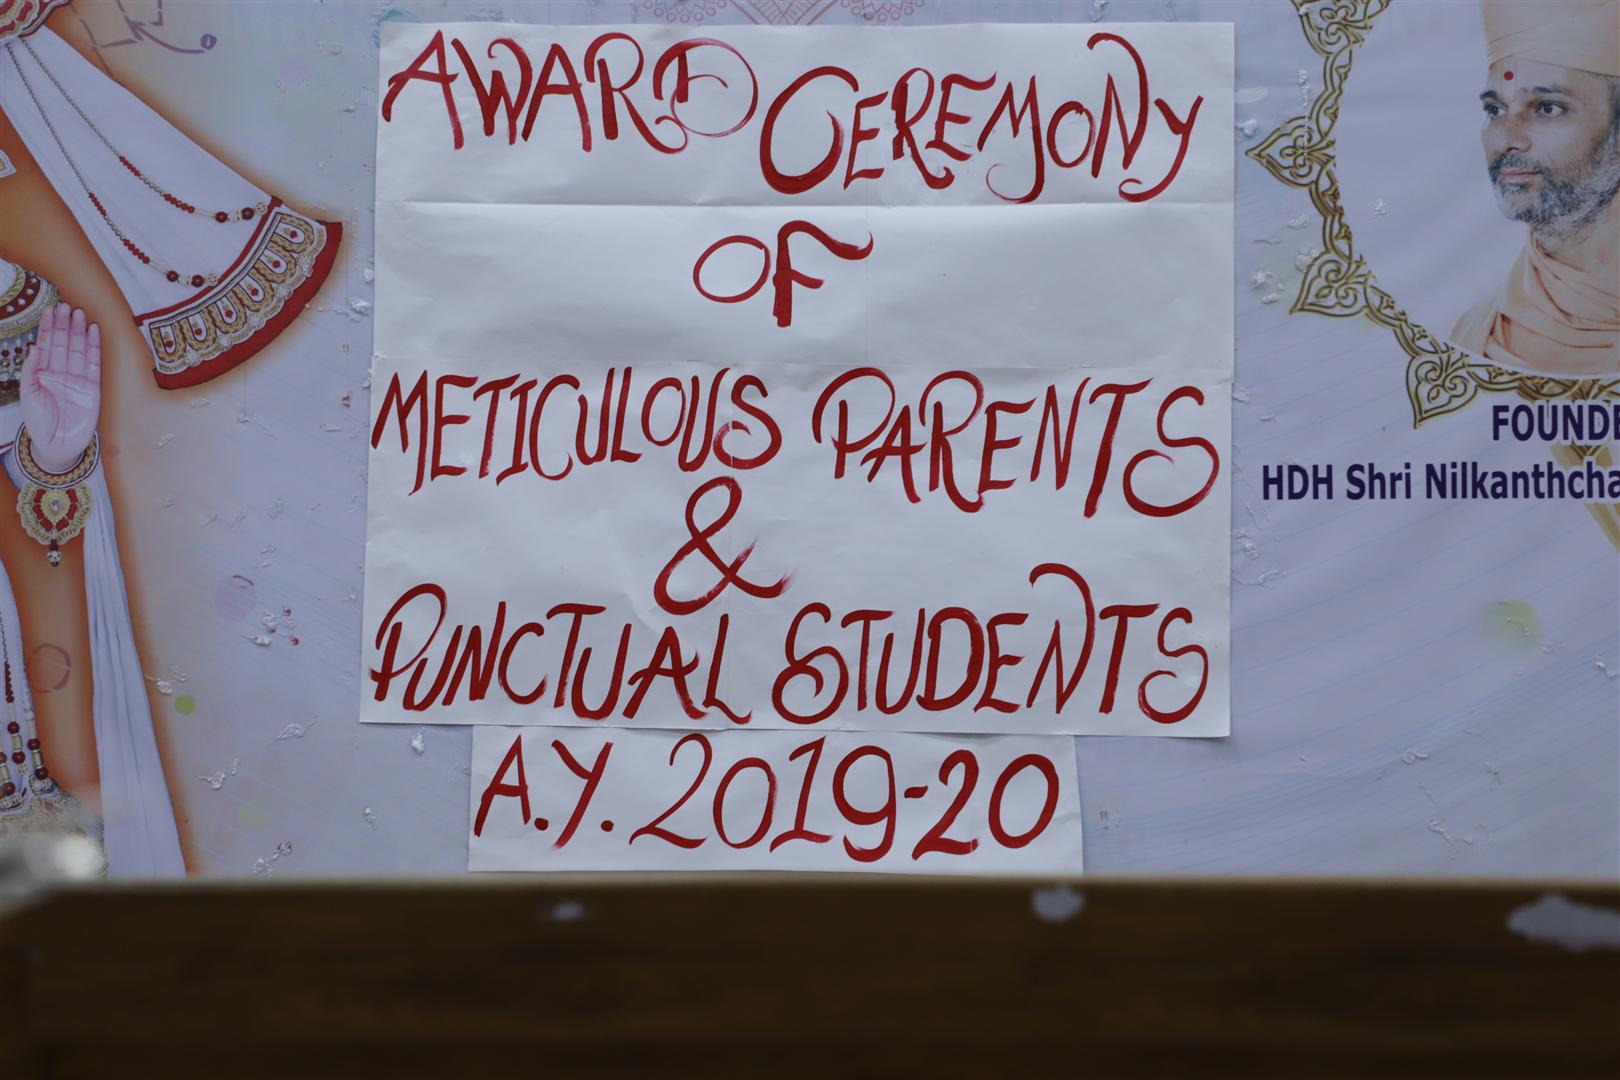 AWARD CEREMONY
OF
METICULOUS PARENTS
&
PUNCTUAL STUDENTS
A.Y. 2019-20
FOUNDE
HDH Shri Nilkanthcha